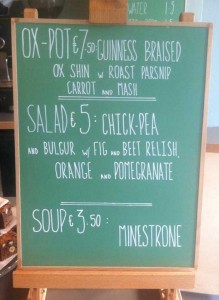 OX-POT £7.50: GUINNESS BRAISED
OX SHIN W ROAST PARSNIP
CARROT AND MASH
SALAD £5: CHICK-PEA
AND BULGUR W/ FIG AND BEET RELISH,
ORANGE AND POMEGRANATE
SOUP £3.50:
MINESTRONE